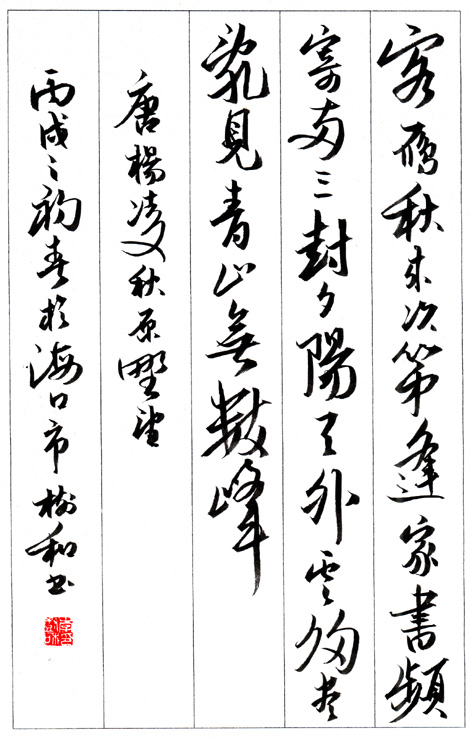 客鴈秋來次第逢家書頻
寄兩三封夕陽天外雲歸盡
亂見青山無數峰
唐楊凌秋原野望
丙戌之初春於海口市樹和书